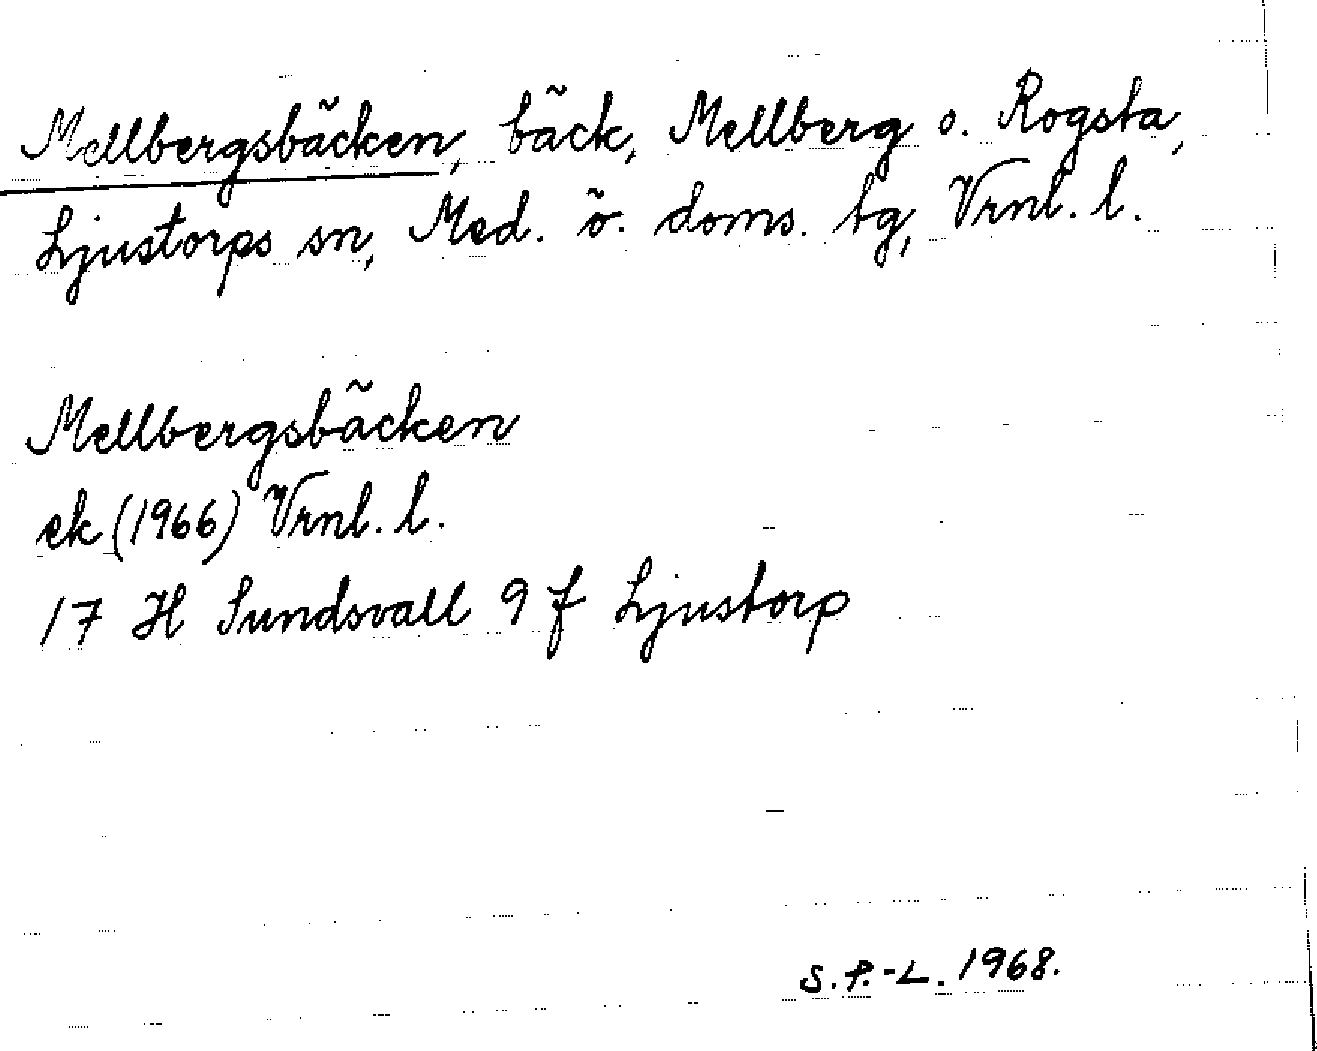 Mellbergsbäcken, bäck, Mellberg o. Rogsta,
Ljustorps sn, Med. ö. doms. tg, Vrnl. l.
Mellbergsbäcken
ek (1966) Vrnl. l.
17 H Sundsvall 9 f Ljustorp
S.P.-L. 1968.